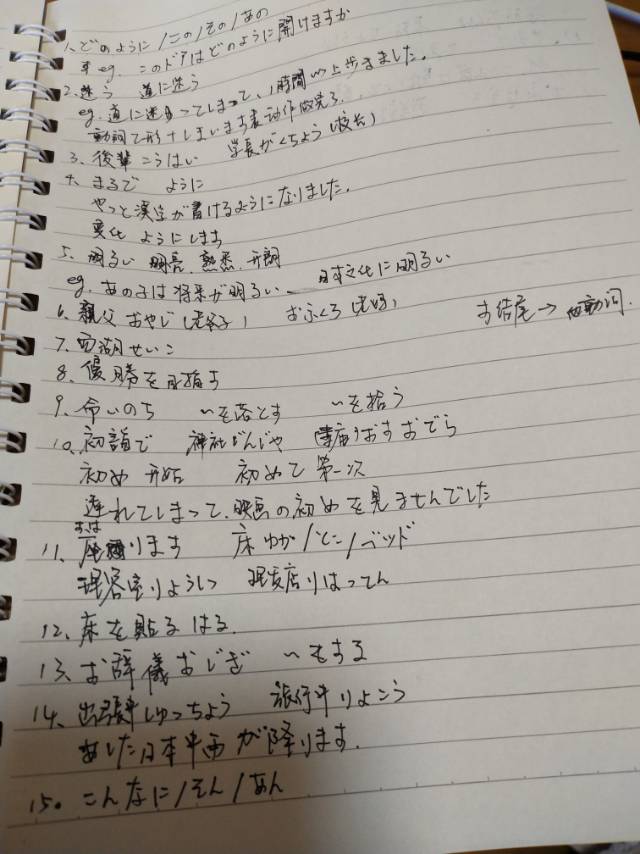 1. どのように / この / その / あの
eg. このドアはどのように開けますか
2. 迷う 道に迷う
eg. 道に迷ってしまって、1時間以上歩きました。
動詞て形+しまいます表动作做完了
3. 後輩 こうはい 学長がくちょう(校长)
4. まるで ように
やっと漢字が書けるようになりました。
変化 ようにします
5. 明るい 明亮、熟悉、开朗
eg. あの子は将来が明るい 日本文化に明るい
6. 親父 おやじ(老爷子) おふくろ(老妈)
す结尾→他動詞.
7. 西湖せいこ
8. 優勝を目指す
9. 命いのち 〃を落とす 〃を拾う
10. 初詣で 神社じんじゃ おすおでら
初め 开始 初めて 第一次
遅れてしまって、映画の初めを見ませんでした
11. 座ります 床ゆか / とこ / ベッド
理容室りようしつ 理发店りはってん
12. 床を貼る はる
13. お辞儀おじぎ 〃をする
14. 出張 しゅっちょう 旅行 りょこう
あした日本 雨が降ります.
15. こんなに / そん / あん